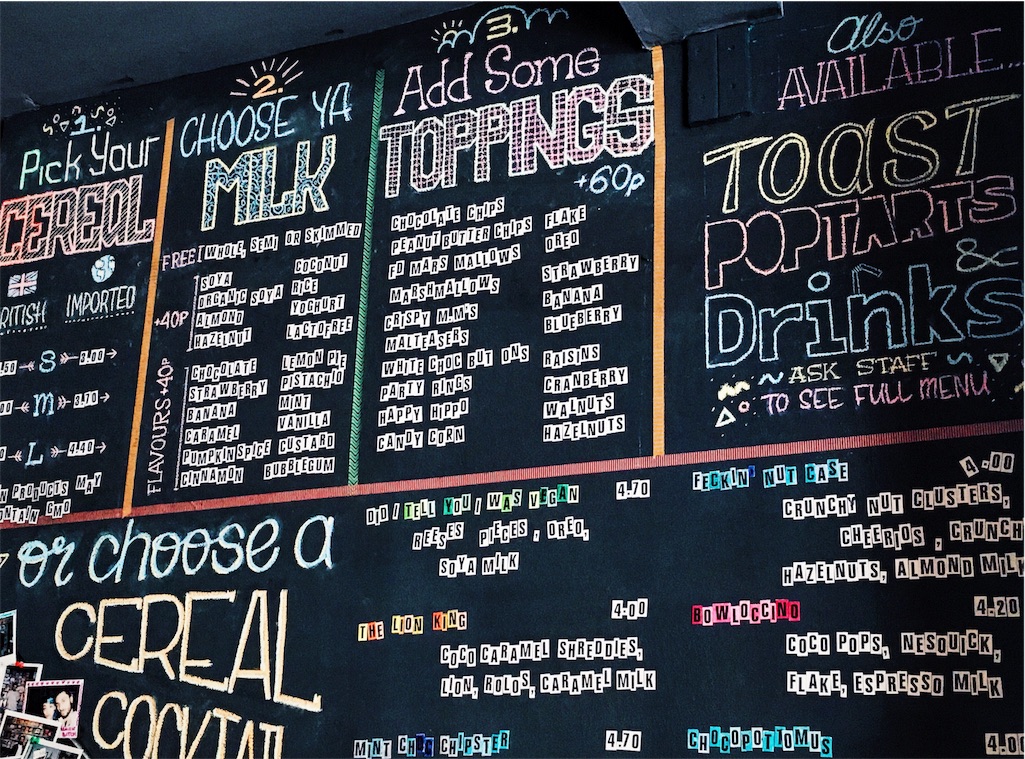 1.
Pick Your
CEREAL
IMPORTED
S 3.00
M 3.70
L 4.40
PRODUCTS MAY
GMO
2.
CHOOSE YA
MILK
FREE WHOLE, SEMI OR SKIMMED
+40P
SOYA
ORGANIC SOYA
ALMOND
HAZELNUT
COCONUT
RICE
YOGHURT
LACTOFREE
FLAVOURS +40P
CHOCOLATE
STRAWBERRY
BANANA
CARAMEL
PUMPKINSPICE
CINNAMON
LEMON PIE
PISTACHIO
MINT
VANILLA
CUSTARD
BUBBLEGUM
3.
Add Some
TOPPINGS
+60p
CHOCOLATE CHIPS
PEANUT BUTTER CHIPS
FD MARS MALLOWS
MARSHMALLOWS
CRISPY M.M'S
MALTEASERS
WHITE CHOC BUT ONS
PARTY RINGS
HAPPY HIPPO
CANDY CORN
FLAKE
OREO
STRAWBERRY
BANANA
BLUEBERRY
RAISINS
CRANBERRY
WALNUTS
HAZELNUTS
Also
AVAILABLE...
TOAST
POPTARTS
&
Drinks
ASK STAFF
TO SEE FULL MENU
or choose a
CEREAL
COCKTAIL
DID I TELL YOU I WAS VEGAN 4.70
REESES PIECES, OREO,
SOYA MILK
THE LION KING 4.00
COCO CARAMEL SHREDDIES,
LION, ROLOS, CARAMEL MILK
MINT CHIP CHIPSTER 4.70
FECKIN' NUT CASE 4.00
CRUNCHY NUT CLUSTERS,
CHEERIOS, CRUNCH
HAZELNUTS, ALMOND MILK
BOWLOCCINO 4.20
COCO POPS, NESQUICK,
FLAKE, ESPRESSO MILK
CHOCOPOTTOMUS